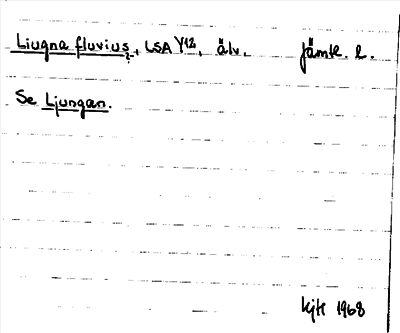 Liugna fluvius, LSA Y12, älv. Jämtl. l.
Se Ljungan.
1968